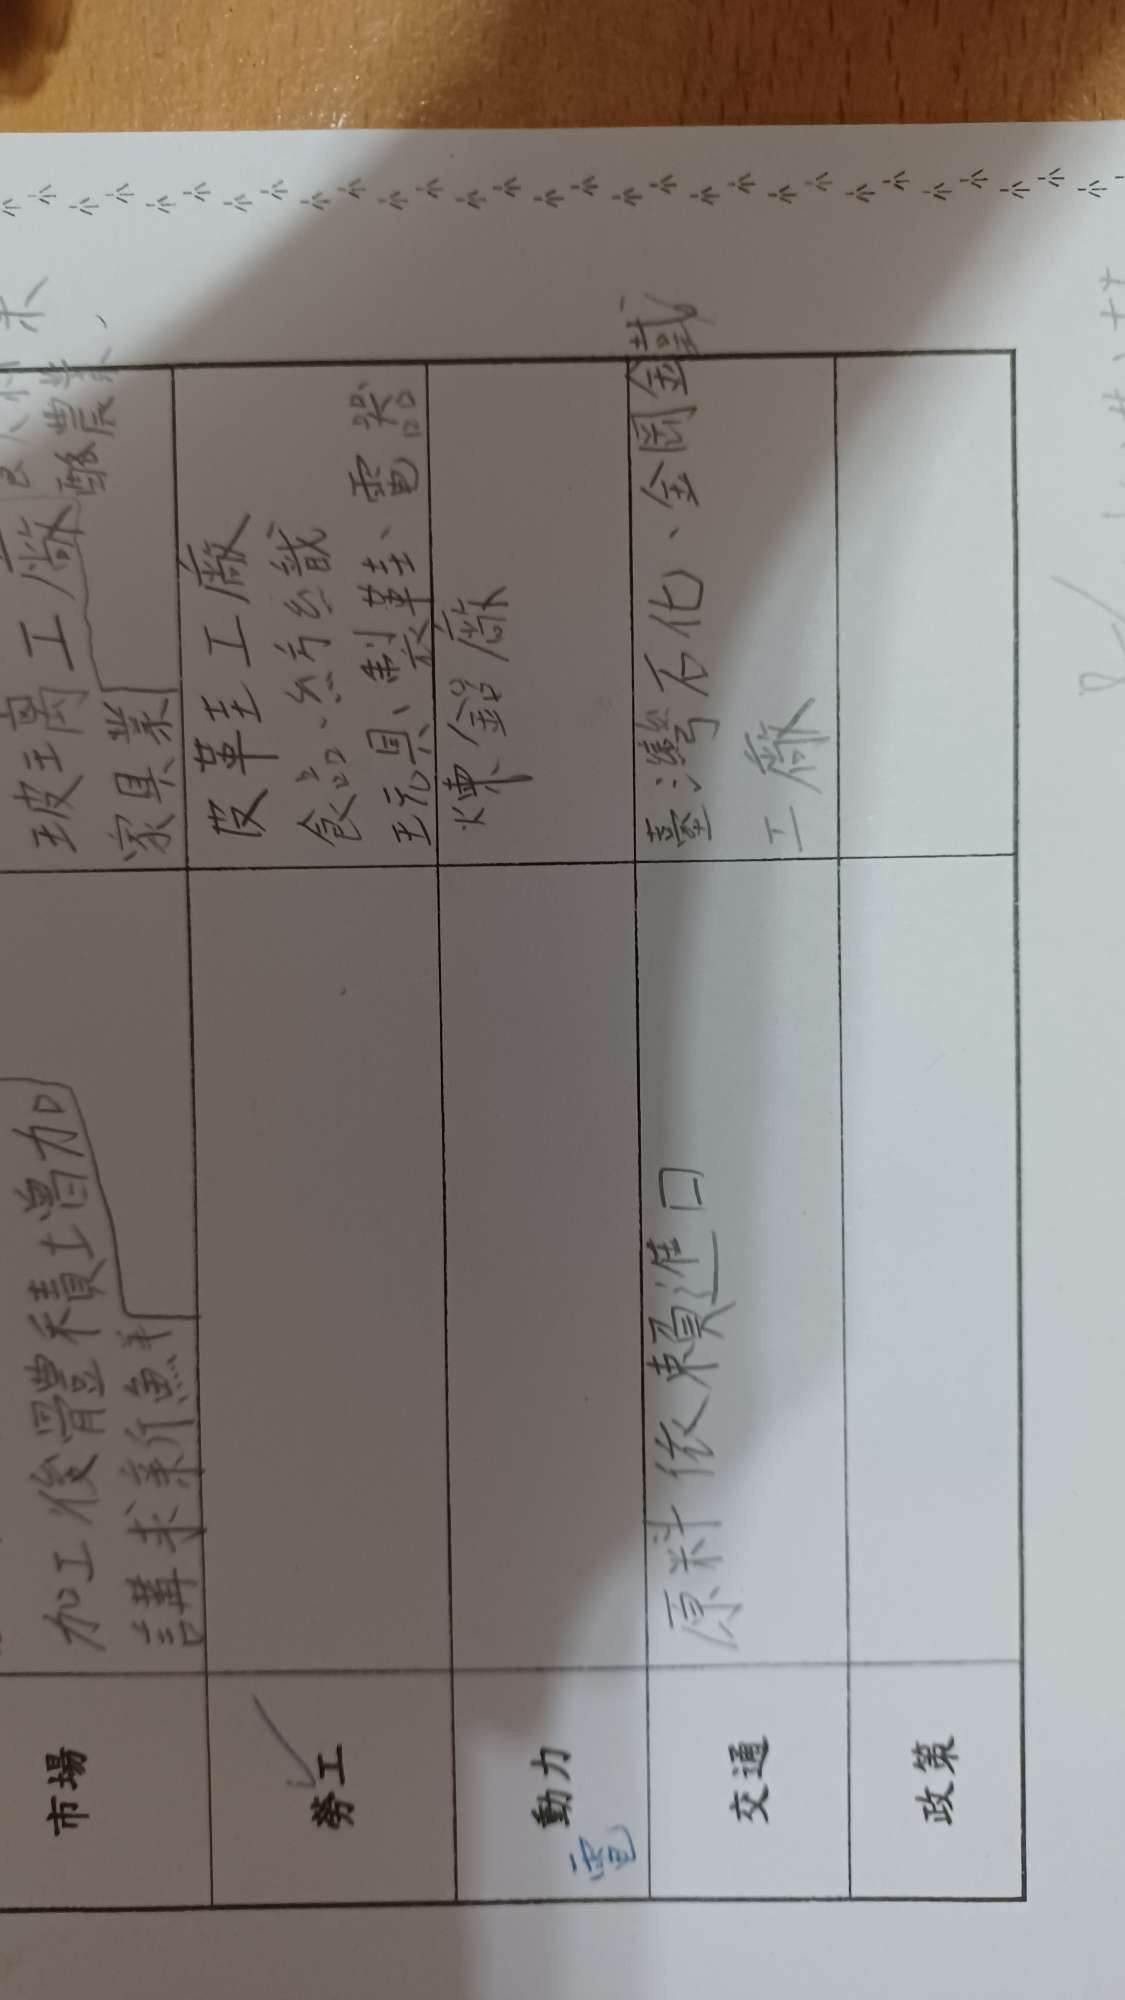 市場
加工後體積增加
講求新鮮
玻璃工廠
家具業
酸農業、
勞工
皮革工廠
食品、紡織
玩具、製鞋、電器
動力
電
煉鋁廠
交通
原料依賴進口
臺灣石化、金岡金鐵
工廠
政策